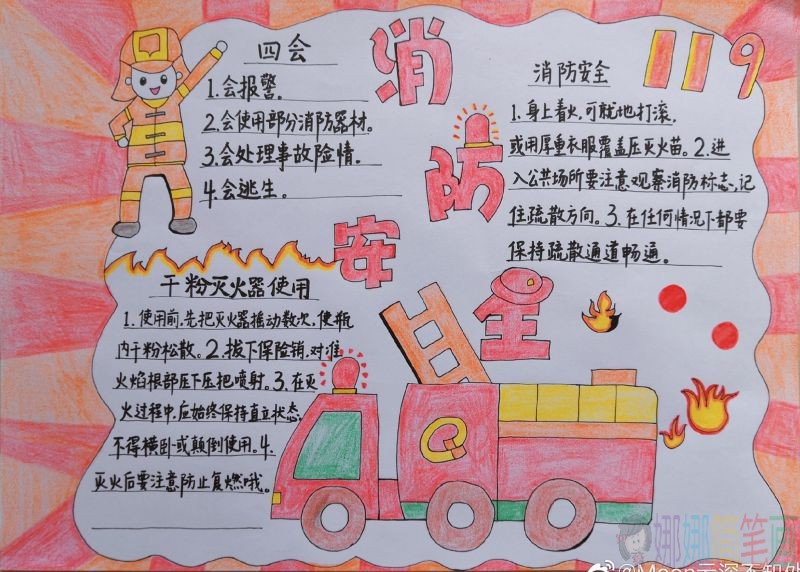 四会
1.会报警。
2.会使用部分消防器材。
3.会处理事故险情。
4.会逃生。
消
防
安
全
119
消防安全
1.身上着火,可就地打滚,
或用厚重衣服覆盖压灭火苗。2.进
入公共场所要注意观察消防标志,记
住疏散方向。3.在任何情况下都要
保持疏散通道畅通。
干粉灭火器使用
1.使用前,先把灭火器摇动数次,使瓶
内干粉松散。2.拔下保险销,对准
火焰根部压下压把喷射。3.在灭
火过程中,应始终保持直立状态,
不得横卧或颠倒使用。4.
灭火后要注意防止复燃哦。
娜娜简笔画
@Moon云深不知处